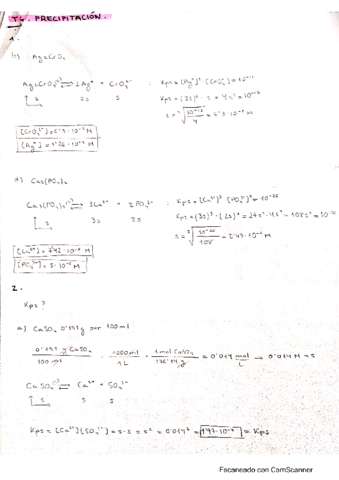 T6. PRECIPITACIÓN.
1.
b) Ag2CrO4
Ag2CrO4 ⇌ 2Ag⁺ + CrO4²⁻ : Kps = [Ag⁺]² · [CrO4²⁻] = 10⁻¹²
s 2s s Kps = (2s)² · s = 4s³ = 10⁻¹²
s = ∛(10⁻¹²/4) = 6'3 · 10⁻⁵ M
[CrO4²⁻] = 6'3 · 10⁻⁵ M
[Ag⁺] = 1'26 · 10⁻⁴ M
d) Ca3(PO4)2
Ca3(PO4)2 ⇌ 3Ca²⁺ + 2PO4³⁻ : Kps = [Ca²⁺]³ [PO4³⁻]²
s 3s 2s Kps = (3s)³ · (2s)² =
[Ca²⁺] =
[PO4³⁻] =
2.
Kps?
a) CaSO4 0'191 g por 100 ml
0'191 g CaSO4 / 100 ml · 1000 ml / 1 L · 1 mol CaSO4 / 136'14 g = 0'014 mol/L → 0'014 M = s
CaSO4 ⇌ Ca²⁺ + SO4²⁻
s s s
Kps = [Ca²⁺][SO4²⁻] = s · s = s² = 0'014² = = Kps
Escaneado con CamScanner